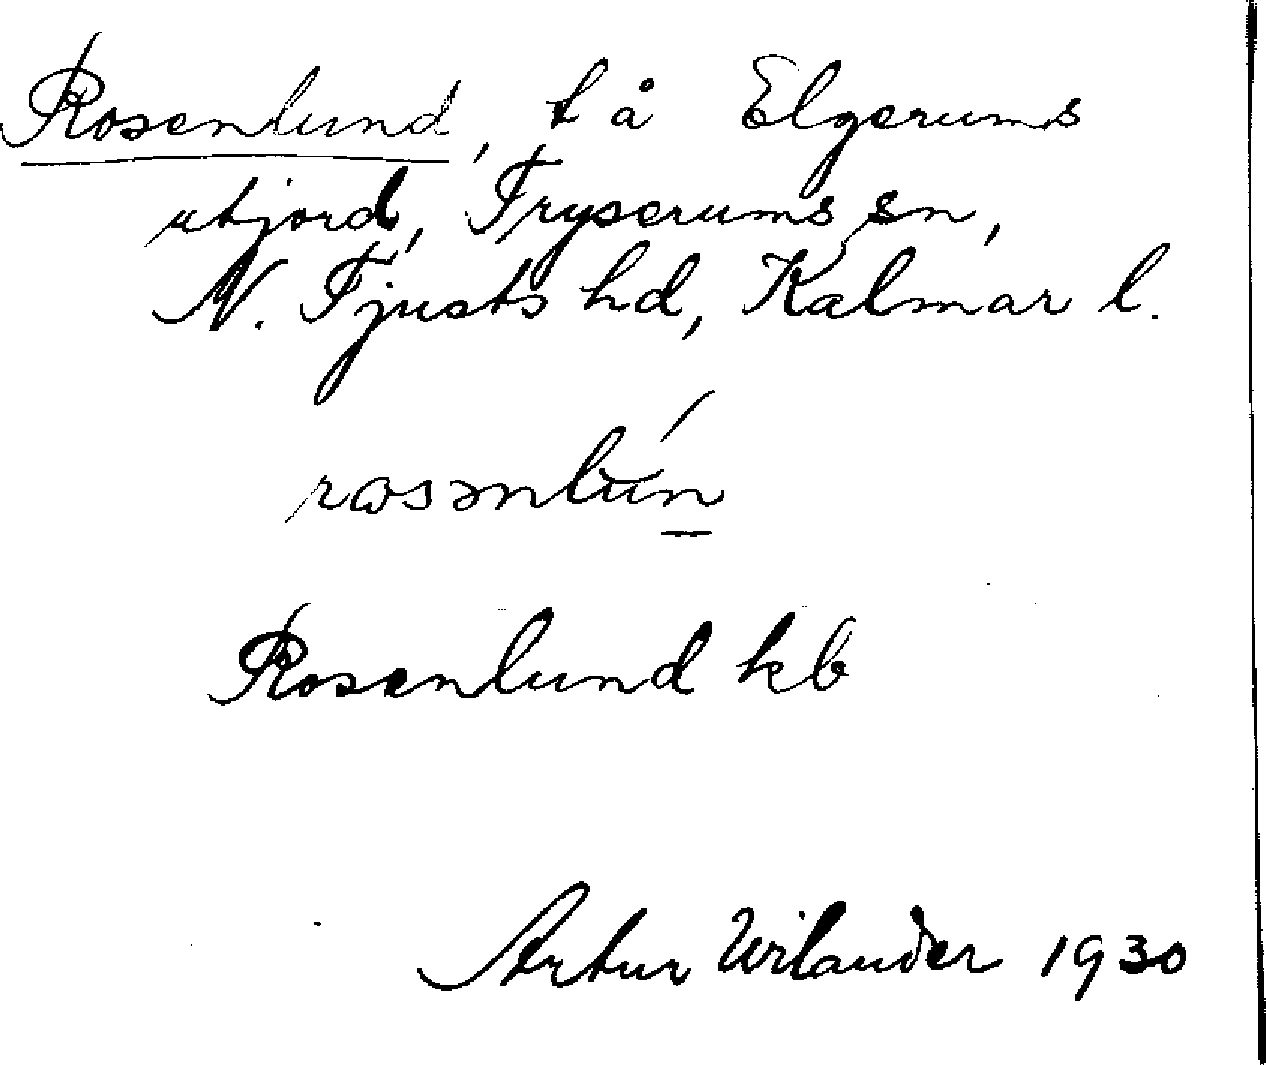 Rosenlund, t å Elgerums
utjord, Tryserums sn,
N. Tjusts hd, Kalmar l.
rωsənlún
Rosenlund kb
Artur Wilander 1930